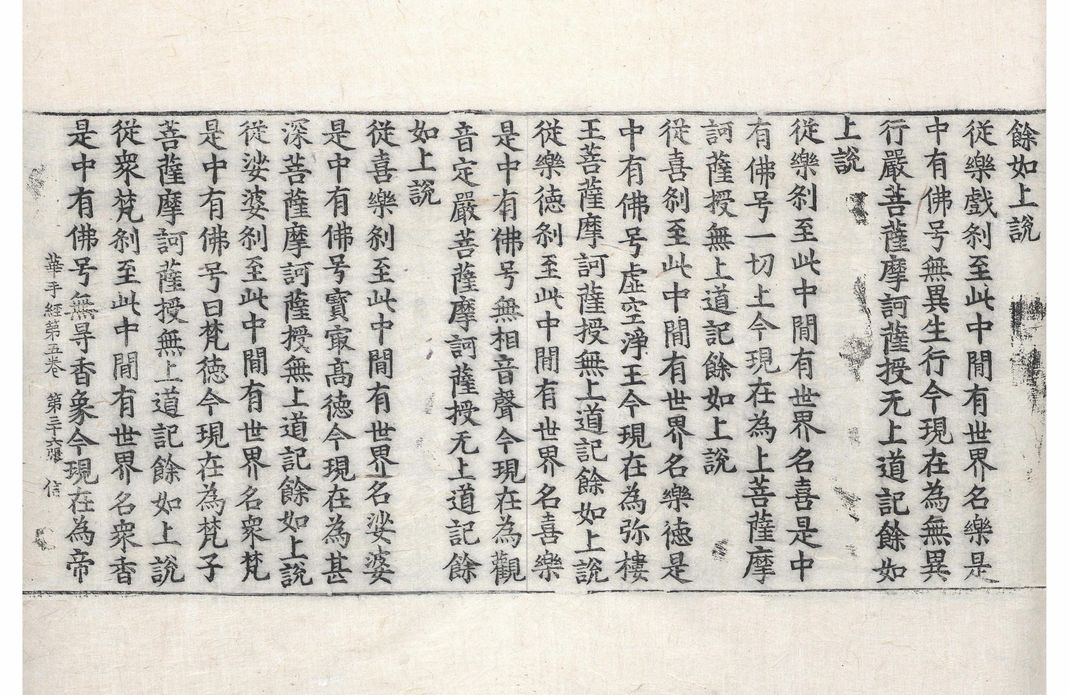 餘如上說
從樂戲刹至此中閒有世界名樂是
中有佛号無異生行今現在為無異
行嚴菩薩摩訶薩授无上道記餘如
上說
從樂刹至此中閒有世界名喜是中
有佛号一切上今現在為上菩薩摩
訶薩授無上道記餘如上說
從喜刹至此中閒有世界名樂德是
中有佛号虛空淨王今現在為弥樓
王菩薩摩訶薩授無上道記餘如上說
從樂德刹至此中閒有世界名喜樂
是中有佛号無相音聲今現在為觀
音定嚴菩薩摩訶薩授无上道記餘
如上說
從喜樂刹至此中閒有世界名娑婆
是中有佛号寶㝡高德今現在為甚
深菩薩摩訶薩授無上道記餘如上說
從娑婆刹至此中閒有世界名衆梵
是中有佛号曰梵德今現在為梵子
菩薩摩訶薩授無上道記餘如上說
從衆梵刹至此中閒有世界名衆香
華手經第五卷 第三十六張 信
是中有佛号無㝵香象今現在為帝